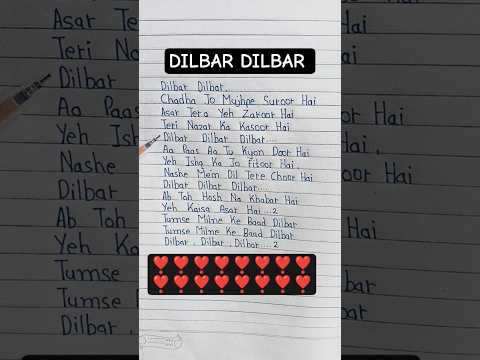 DILBAR DILBAR
Dilbar Dilbar.
Chadha Jo Mujhpe Suroor Hai
Asar Tera Yeh Zaroor Hai
Teri Nazar Ka Kasoor Hai
Dilbar Dilbar Dilbar....
Aa Paas Aa Tu Kyon Door Hai
Yeh Ishq Ka Jo Fitoor Hai,
Nashe Mein Dil Tere Choor Hai
Dilbar Dilbar Dilbar...
Ab Toh Hosh Na Khabar Hai
Yeh Kaisa Asar Hai...2
Tumse Milne Ke Baad Dilbar
Tumse Milne Ke Baad Dilbar
Dilbar , Dilbar , Dilbar ....2
Asar Te
Teri Na
Dilbar
Aa Paas
Yeh Ish
Nashe
Dilbar
Ab Toh
Yeh Ka
Tumse
Tumse
Dilbar ,